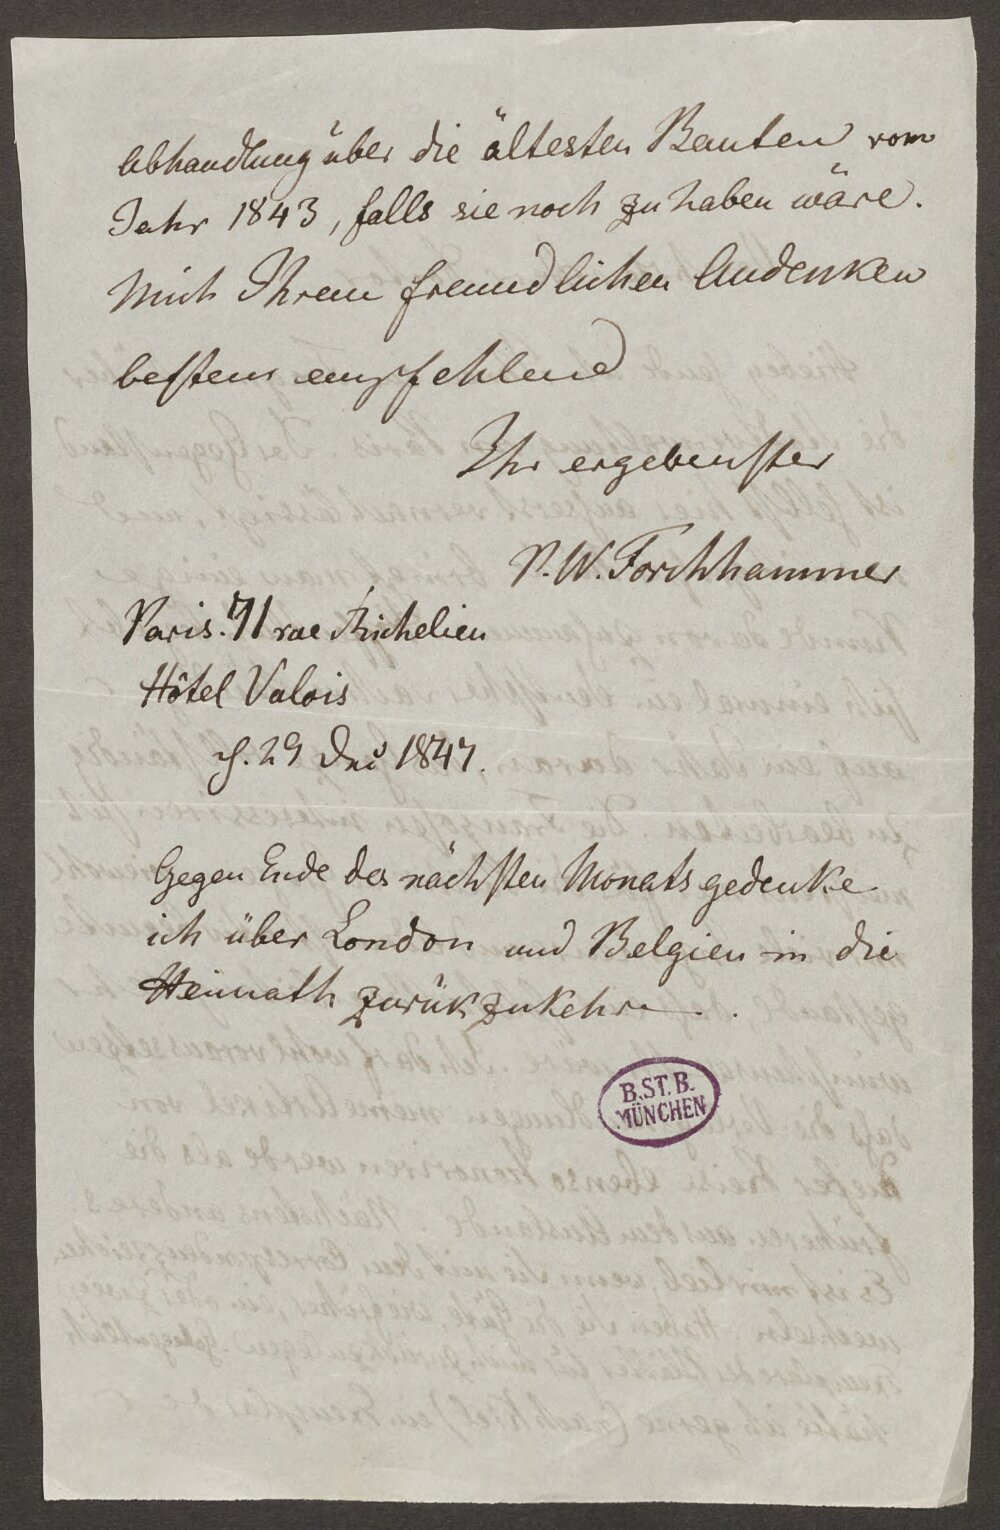 Abhandlung über die ältesten Bauten vom
Jahr 1843, falls sie noch zu haben wäre.
Mich Ihrem freundlichen Andenken
bestens empfehlend
Ihr ergebenster
P. W. Forchhammer
Paris. 71 rue Richelieu
Hôtel Valois
d. 29 Dec 1847.
Gegen Ende des nächsten Monats gedenke
ich über London und Belgien in die
Heimath zurükzukehren.
B.ST.B.
MÜNCHEN